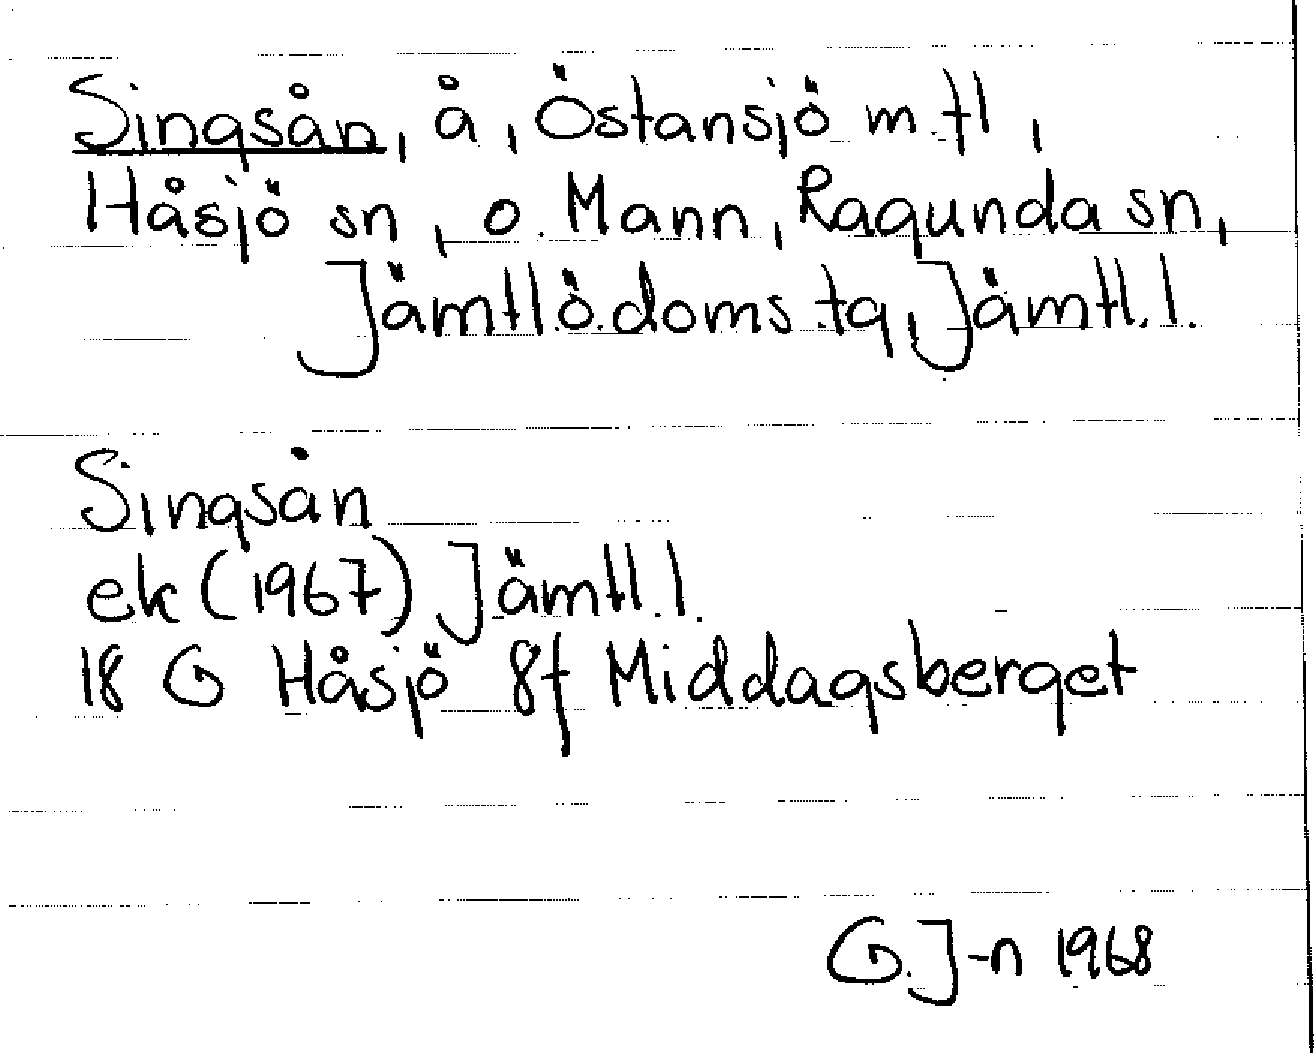 Singsån, å, Östansjö m.fl,
Håsjö sn, o. Mann, Ragunda sn,
Jämtl.ö.doms.tg, Jämtl.l.
Singsån
ek (1967) Jämtl.l.
18 G Håsjö 8f Middagsberget
G.J-n 1968